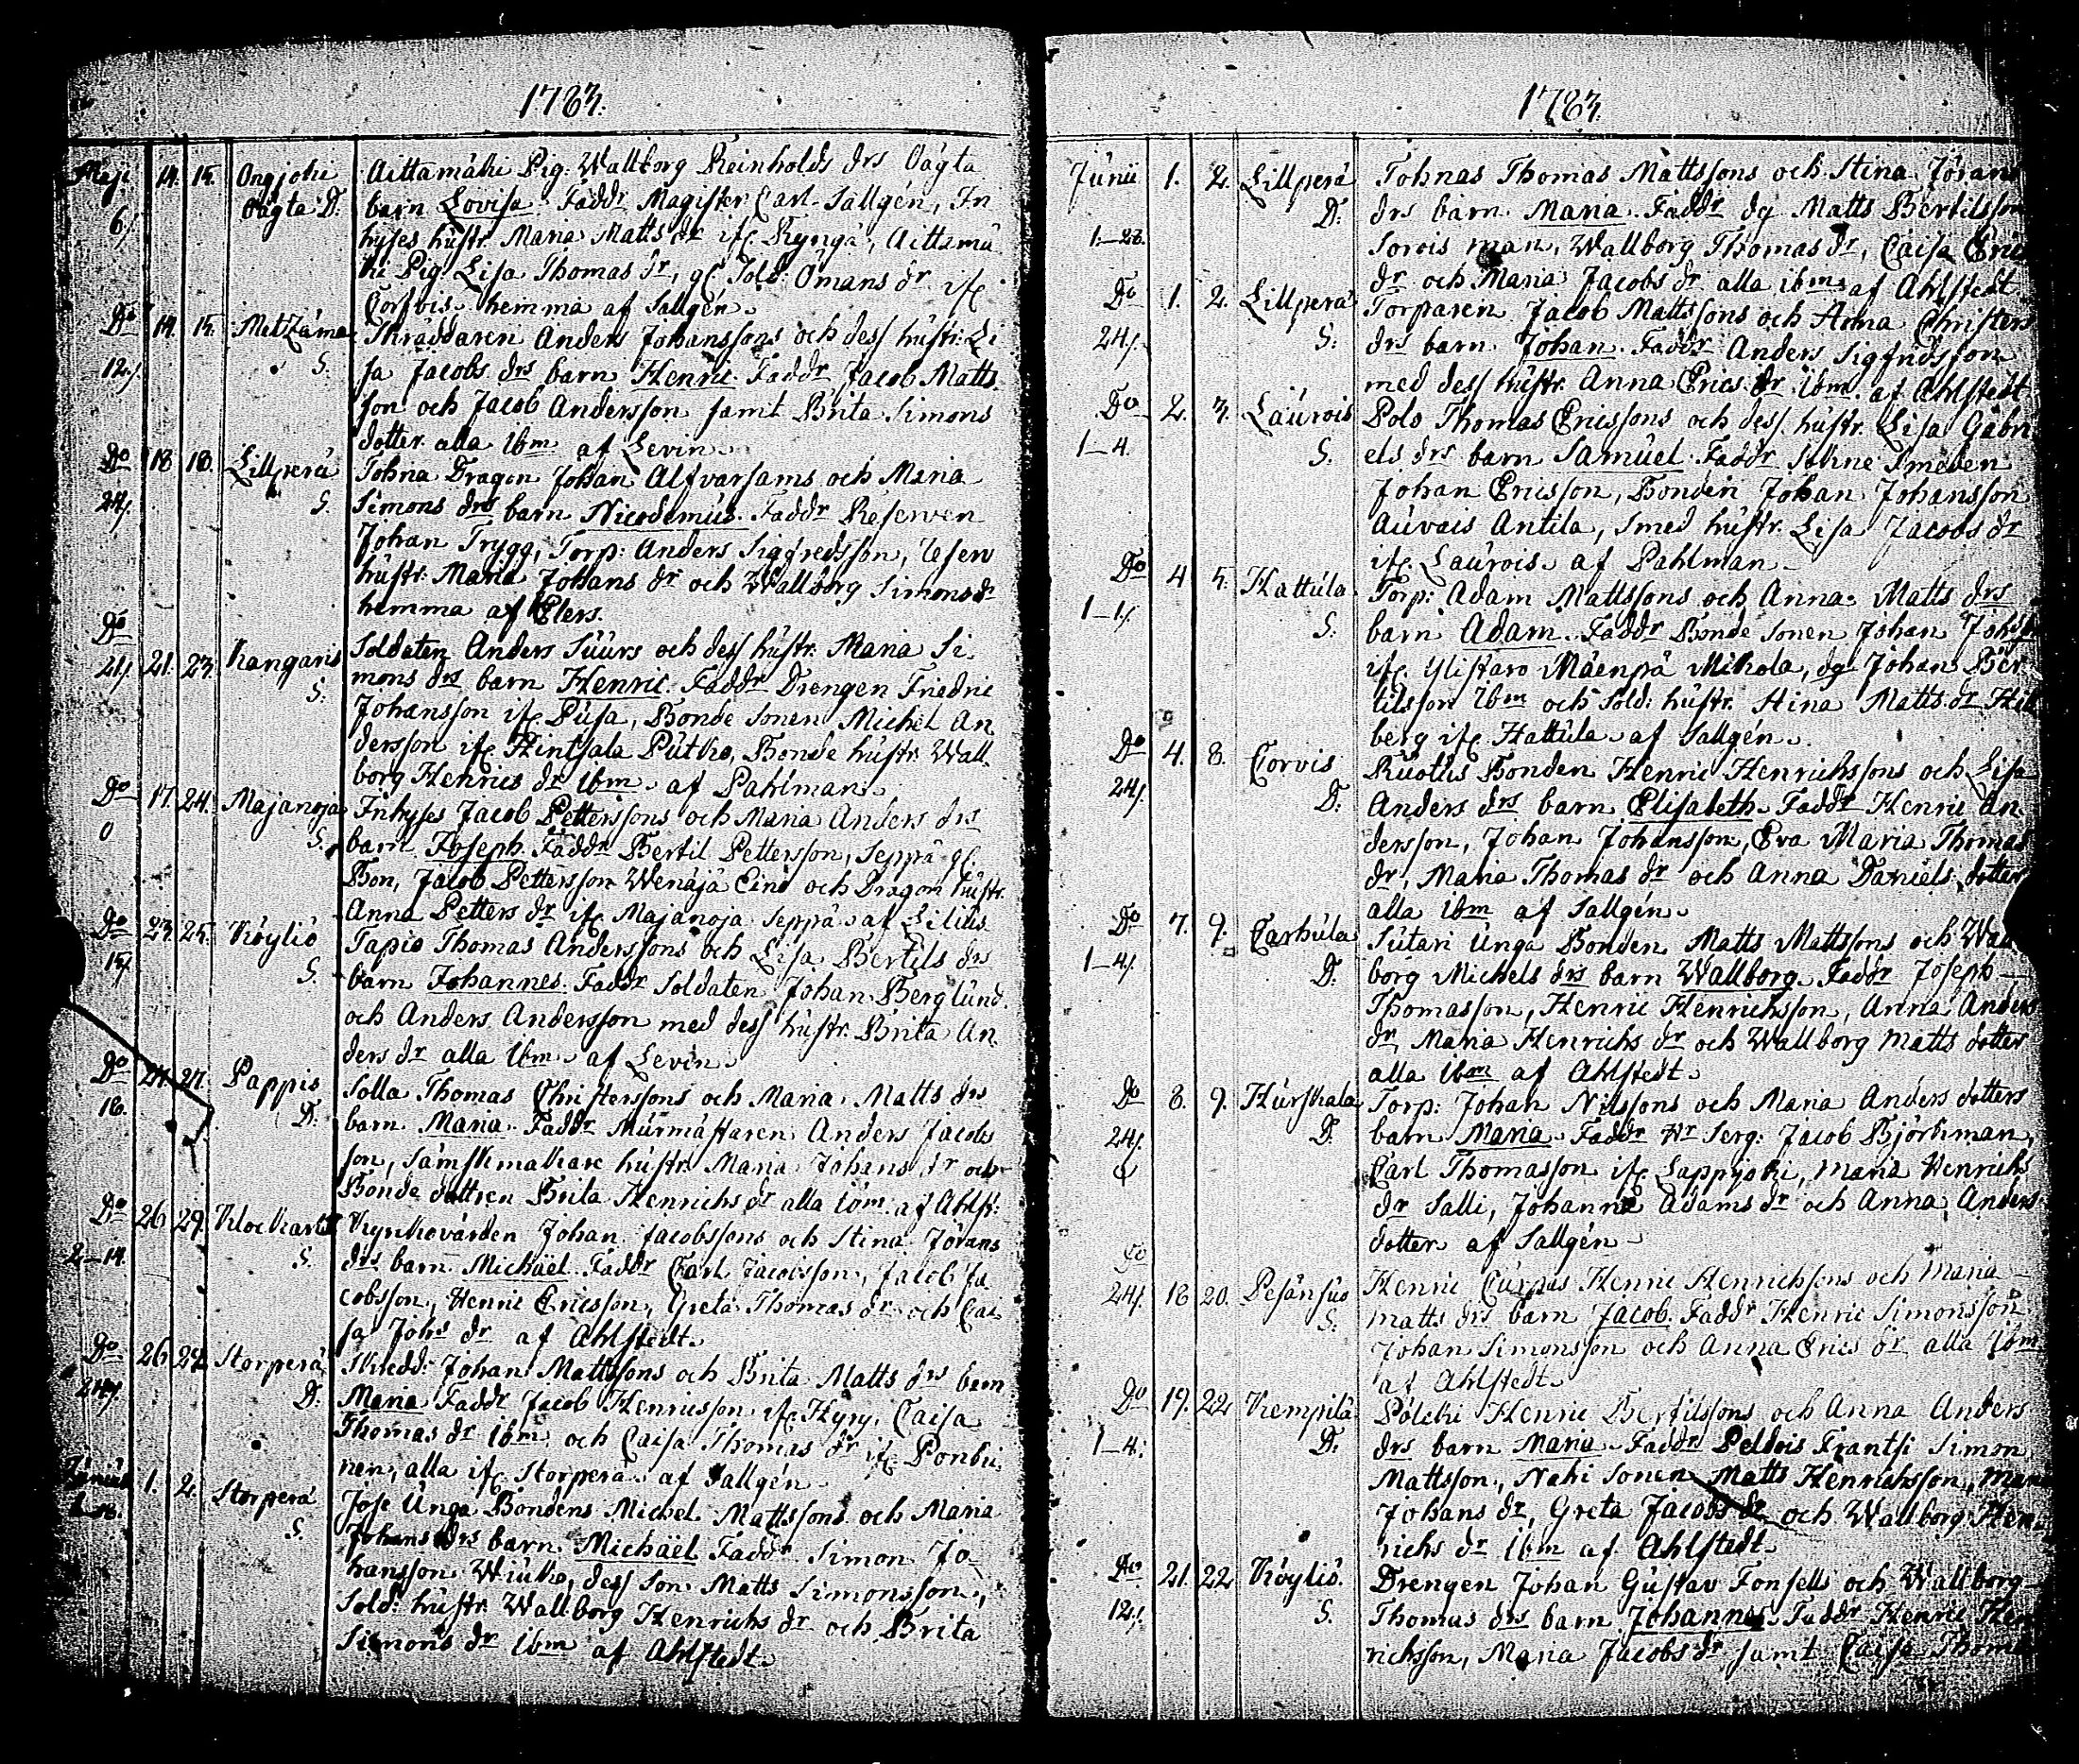 1783.
Maji 14. 15. Ongjoki Aittamäki Pig: Wallborg Reinholds drs Oägta
6/ Oägta D. barn Lovisa. Faddr Magister Carl Sallgén, In
hyses hustr. Maria Matts dr ifr. Kyngä, Aittamä
ki Pig. Lisa Thomas dr, gl. Sold: Ömans dr ifr.
Corfvis hemma af Sallgén.
Do 14. 15. Metzäma Skräddaren Anders Johanssons och dess hustr: Li
12/. S. sa Jacobs drs barn Henric. Faddr Jacob Matts
son och Jacob Andersson samt Brita Simons
dotter alla ibm af Levin.
Do 18 18. Lillperä Tohna Dragon Johan Alfvarsams och Maria
24/. S. Simons drs barn Nicodemus. Faddr Reserven
Johan Trygg, Torp: Anders Sigfredsson,
hustr. Maria Johans dr och Wallborg Simons dr
hemma af Elers.
Do Soldaten Anders Suurs och dess hustr. Maria Si
21/. 21. 23. Kangaris S. mons drs barn Henric. Faddr Drengen Friedric
Johansson ifr. Pusa, Bonde Sonen Michel An
dersson ifr. Hintsala Putko, Bonde hustr. Wall
borg Henrics dr ibm af Pahlman.
Do 17. 24. Majanoja Inhyses Jacob Petterssons och Maria Anders drs
0 S. barn Joseph. Faddr Bertil Pettersson, Seppä gl.
Bon, Jacob Pettersson Wenäjä Eino och Dragon hustr.
Anna Petters dr ifr. Majanoja Seppä af Lilius
Do 23. 25. Köyliö Tapio Thomas Anderssons och Lisa Bertils drs
15/. S. barn Johannes. Faddr Soldaten Johan Berglund.
och Anders Andersson med dess hustr. Brita An
ders dr alla ibm af Levin.
Do 24. 27. Pappis Solla Thomas Christerssons och Maria Matts drs
16. D. barn Maria. Faddr Murmästaren Anders Jacobs
son, Sämskmakare hustr. Maria Johans dr och
Bonde dottren Brita Henrichs dr alla ibm af Ahlst:
Do 26 29. Klockarst Kyrkovärden Johan Jacobssons och Stina Jörans
2–14. S. drs barn Michäel. Faddr Carl Jacobsson, Jacob Ja
cobsson, Henric Ericsson, Greta Thomas dr och Cai
sa Johs dr af Ahlstedt.
Do 26 29 Storperä Skredd: Johan Mattssons och Brita Matts drs barn
24/. D. Maria Faddr Jacob Henricsson ifr. Hyry, Caisa
Thomas dr ibm och Caisa Thomas dr ifr. Ponbu
nen, alla ifr. Storperä af Sallgén.
Junius 1. 2. Storperä Jose Unga Bondens Michel Mattssons och Maria
S. Johans drs barn Michäel Faddr Simon Jo
hansson Wiuko, dess Son Matts Simonsson,
Sold: hustr Wallborg Henrichs dr och Brita
Simons dr ibm af Ahlstedt.
1783.
Junii 1. 2. Lillperä Tohnas Thomas Mattssons och Stina Jörans
D. drs barn Maria. Faddr dg Matts Bertilsson
1–28. Sorois man, Wallborg Thomas dr, Caisa Eric
dr och Maria Jacobs dr alla ibm af Ahlstedt
Do 1. 2. Lillperä Torparen Jacob Mattssons och Anna Christers
24/. S. drs barn Johan. Faddr Anders Sigfridsson
med dess hustr. Anna Erics dr ibm. af Ahlstedt
Do 2. 3. Laurois Polo Thomas Ericssons och dess hustr. Lisa Gabri
1–4. S. els drs barn Samuel. Faddr Sohne Smeden
Johan Ericsson, Bonden Johan Johansson
Auvais Antila, Smed hustr. Lisa Jacobs dr
ifr. Laurois af Pahlman
Do 4 5. Kattula Torp: Adam Mattssons och Anna Matts drs
1–1/. S. barn Adam. Faddr Bonde Sonen Johan Johs
ifr. Ylistaro Mäenpä Mikola, dg Johan Ber
tilsson ibm och Sold: hustr. Stina Matts dr Hil
berg ifr. Hattula af Sallgén.
Do 4. 8. Corvis Ruottis Bonden Henric Henrichssons och Lisa
24/. D. Anders drs barn Elisabeth Faddr Henric An
dersson, Johan Johansson, Eva Maria Thomas
dr, Maria Thomas dr och Anna Daniels dotter
alla ibm af Sallgén.
Do 7. 9. Carhula Sutari Unga Bonden Matts Mattssons och Wall
1–4/. D. borg Michels drs barn Wallborg. Faddr Joseph
Thomasson, Henric Henrichsson, Anna Anders
dr, Maria Henrichs dr och Wallborg Matts dotter
alla ibm af Ahlstedt.
Do 8. 9. Hurskala Torp: Johan Nilssons och Maria Anders dotters
24/. D. barn Maria. Faddr Hr Serg: Jacob Björkman,
Carl Thomasson ifr. Lappjoki, Maria Henrichs
dr Salli, Johanna Adams dr och Anna Anders
dotter af Sallgén
Do Henric Henrichsons och Maria
24/. 18 20. Pesänsuo S. Matts drs barn Jacob. Faddr Henric Simonsson
Johan Simonsson och Anna Erics dr alla ibm
af Ahlstedt.
Do 19. 22 Kempilä Pölcki Henric Bertilssons och Anna Anders
1–4. D. drs barn Maria. Faddr Peldois Frantsi Simon
Mattsson, Nahi Sonen Matts Henrichsson, Mari
Johans dr, Greta Jacobs dr och Wallborg Hen
richs dr ibm af Ahlstedt.
Do 21. 22 Köyliö. Drengen Johan Gustav Fonsells och Wallborg
12/. S. Thomas drs barn Johannes. Faddr Henric Hen
richsson, Maria Jacobs dr samt Caisa Thoma